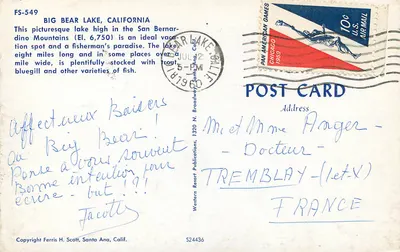 FS-549
BIG BEAR LAKE, CALIFORNIA
This picturesque lake high in the San Bernar-
dino Mountains (El. 6,750) is an ideal vaca-
tion spot and a fisherman's paradise. The lake
eight miles long and in some places over
mile wide, is plentifully stocked with
bluegill and other varieties of fish.
Affectueux Baisers
au Big Bear!
Pense à vous souvent
Bonne intention pour
écrire - but !?!
Jacotte
Copyright Ferris H. Scott, Santa Ana, Calif.
S24436
Western Resort Publications, 1320 N.
BEAR LAKE, CALIF.
JUL 12
5-PM
1960
PAN AMERICAN GAMES
CHICAGO
1959
10¢
U.S.
AIR MAIL
POST CARD
Address
M. et Mme Anger -
- Docteur -
TREMBLAY - (I. et V.)
FRANCE